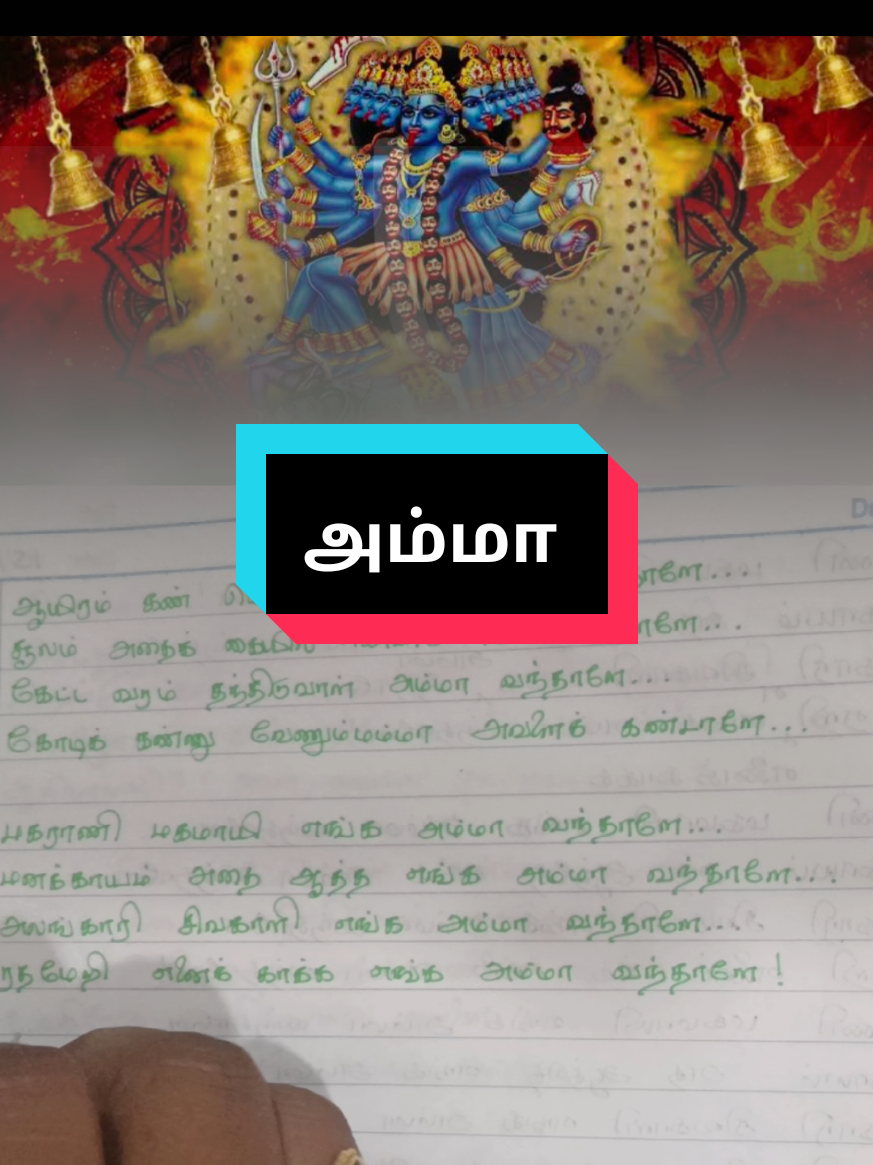 அம்மா
D
ஆயிரம் கண் ளே...
சூலம் அதைக் கையில் ளே...
கேட்ட வரம் தந்திடுவாள் அம்மா வந்தாளே...
கோடிக் கண்ணு வேணும்மம்மா அவளைக் கண்டாளே...
மகராணி மகமாயி எங்க அம்மா வந்தாளே..
மனக்காயம் அதை ஆத்த எங்க அம்மா வந்தாளே...
அலங்காரி சிவகாளி எங்க அம்மா வந்தாளே...
ரதமேறி எனைக் காக்க எங்க அம்மா வந்தாளே!